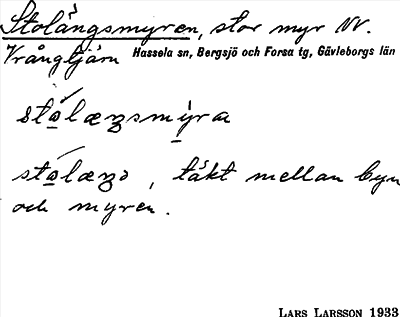 Stolångsmyren, stor myr NV.
Vrångtjärn Hassela sn, Bergsjö och Forsa tg, Gävleborgs län
täkt mellan byn
och myren.
LARS LARSSON 1933